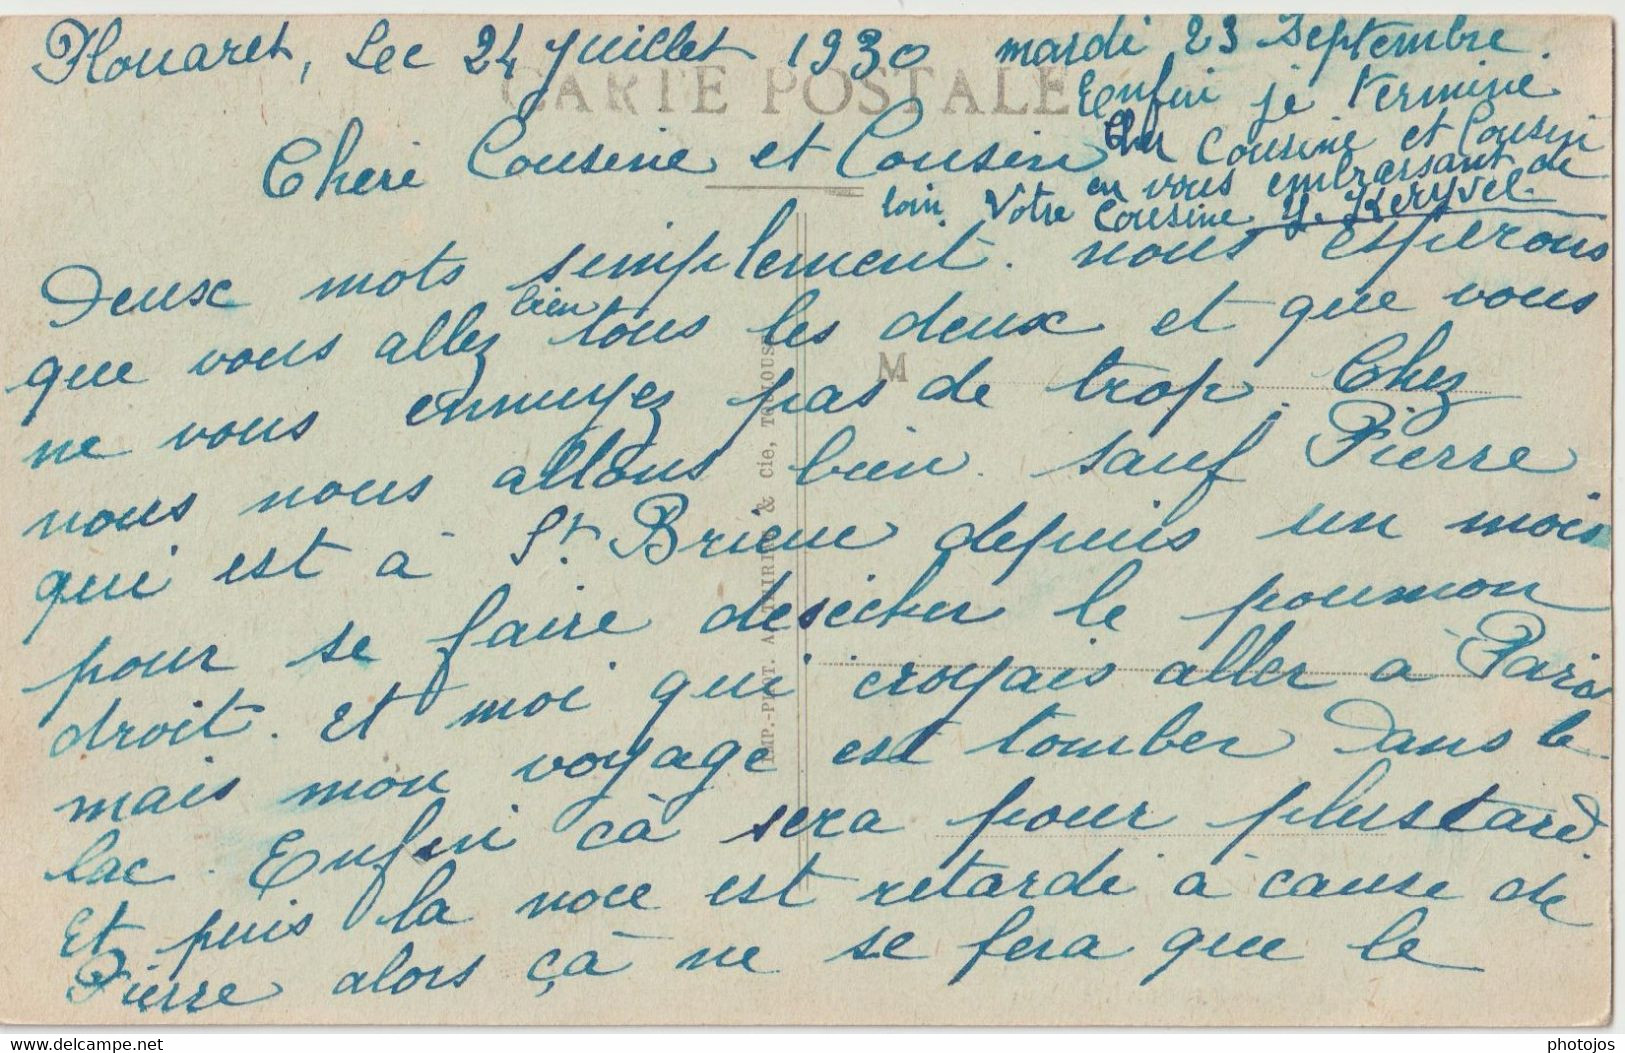 Plouaret, Lec 24 juillet 1930
CARTE POSTALE
Cheri Cousine et Cousin
Deux mots simplement. nous esperons
que vous allez bien tous les deux et que vous
ne vous ennuyez pas de trop. Chez
nous nous allons bien. sauf Pierre
qui est à St Brieuc depuis un mois
pour se faire desécher le poumon
droit. et moi qui croyais aller à Paris
mais mon voyage est tomber dans le
lac. Enfin çà sera pour plustard.
Et puis la noce est retardé à cause de
Pierre alors çà ne se fera que le
mardi 23 Septembre.
Enfin je termine
Cher Cousine et Cousin
en vous embrassant de
loin. Votre Cousine Y. Keryvel
M
IMP.-PHOT. A. THIRIAT & Cie, TOULOUSE
photojos
www.delcampe.net